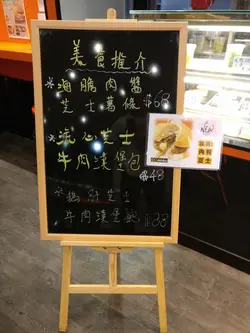 美食推介
*滷脆肉醬
芝士薯條 $68
*流心芝士
牛肉漢堡包
$48
*鵝肝芝士
牛肉漢堡飽 $88
NEW